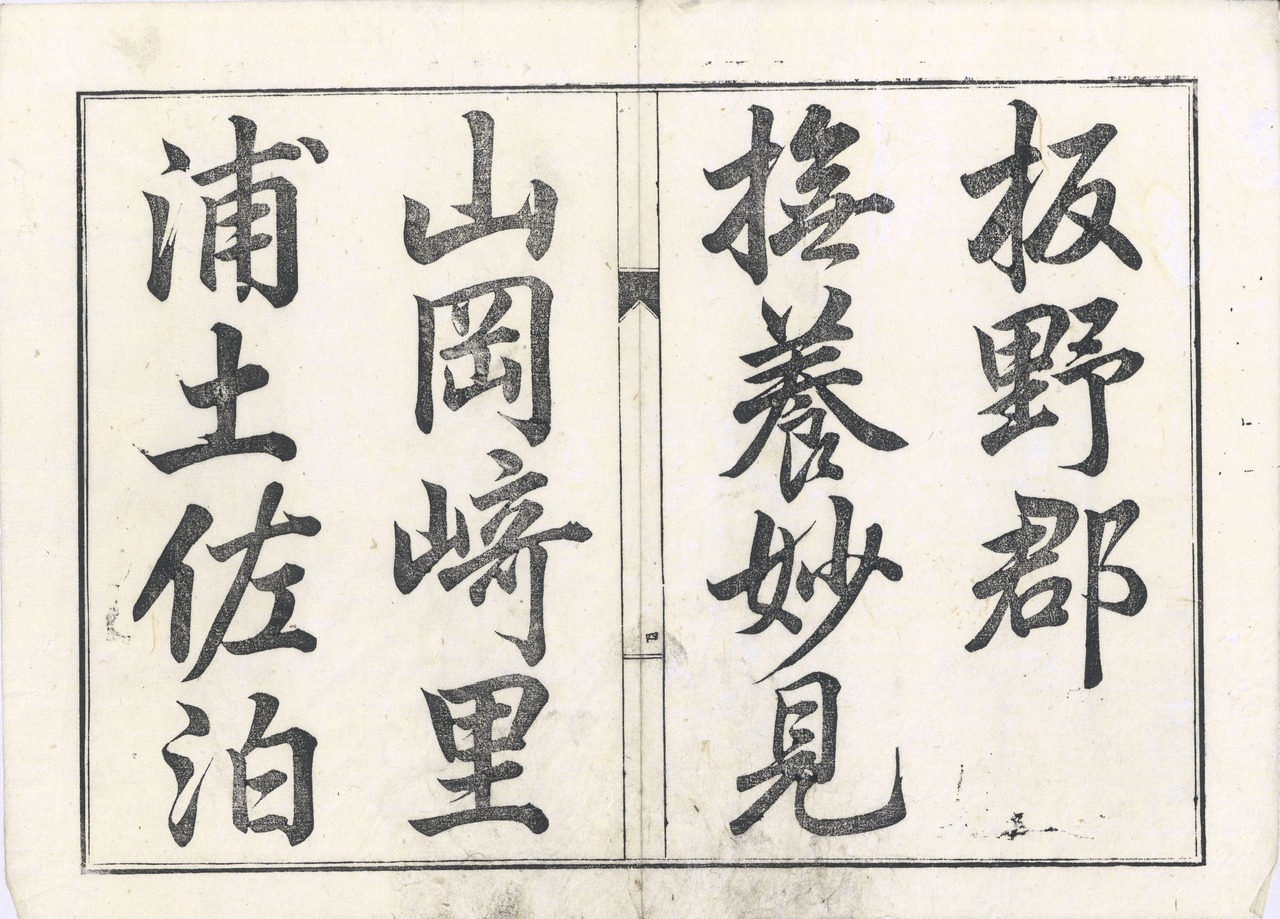 板野郡
撫養妙見
山岡﨑里
浦土佐泊
四